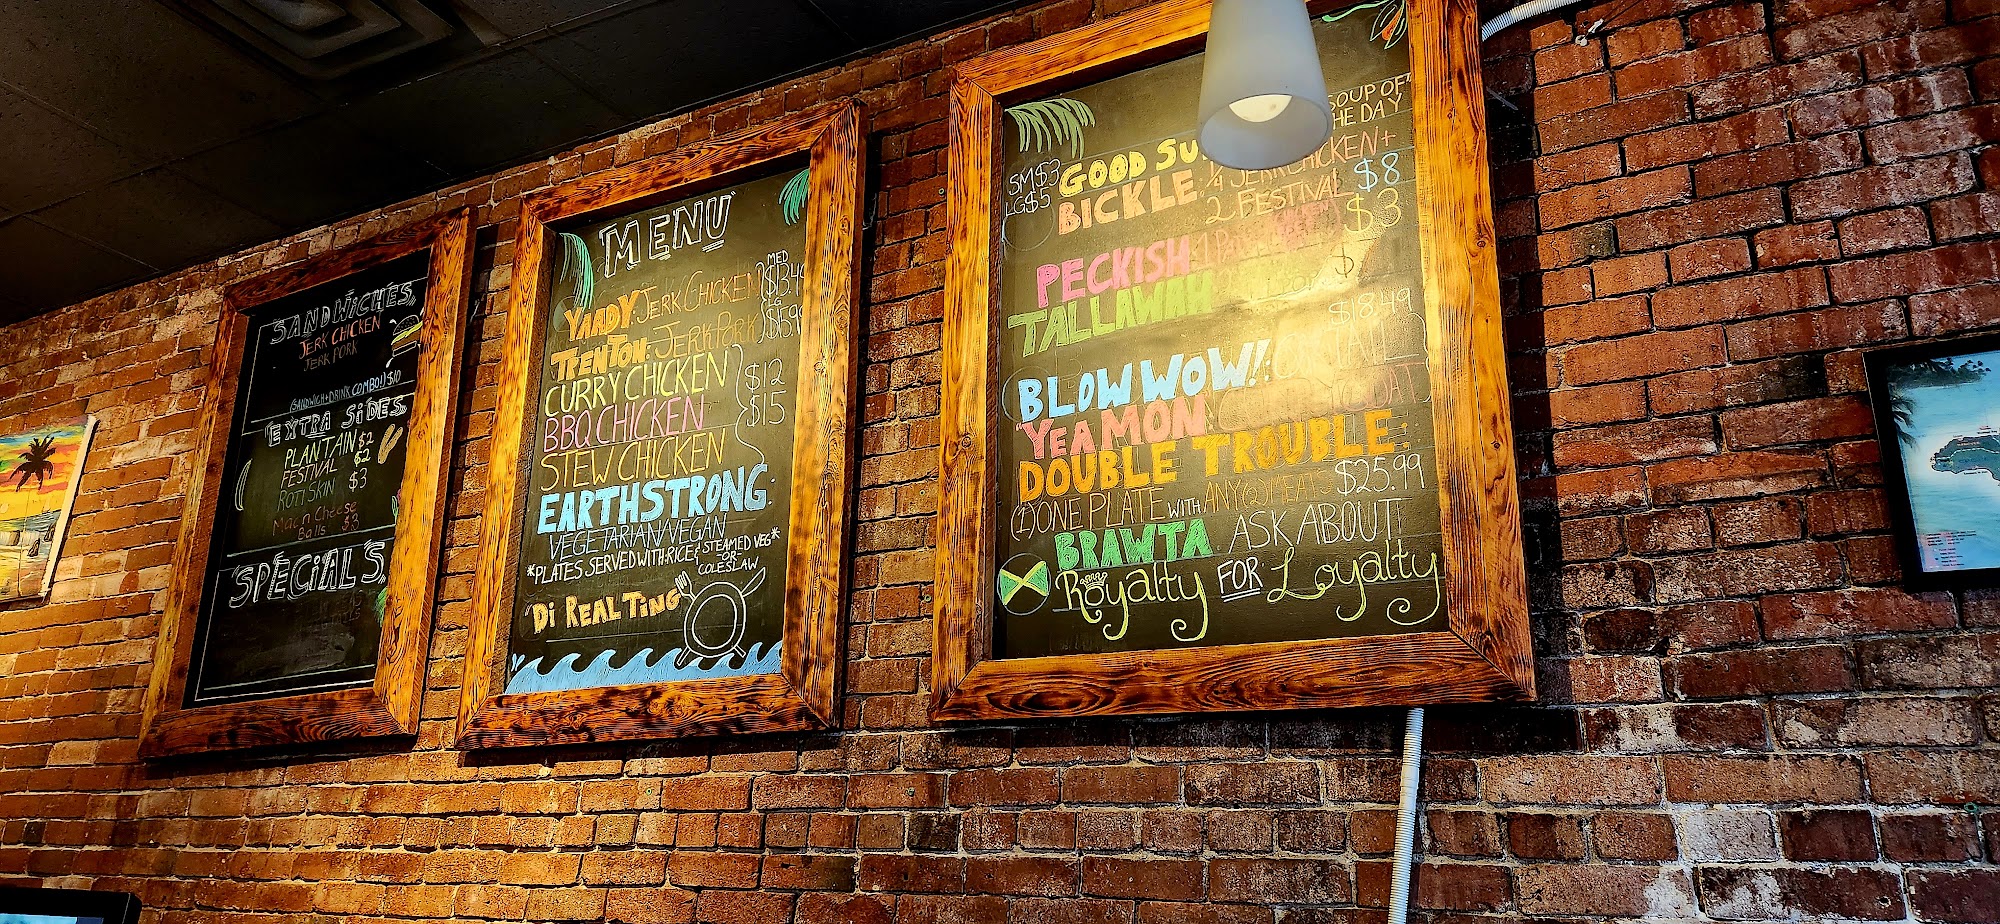 SANDWICHES
JERK CHICKEN
JERK PORK
(SANDWICH+DRINK COMBO!) $10
EXTRA SIDES
PLANTAIN $2
FESTIVAL $2
ROTI SKIN $3
Mac n Cheese
Balls $3
SPECIALS
MENU
MED
YAADY: JERK CHICKEN
LG
TRENTON: JERK PORK
CURRY CHICKEN $12
BBQ CHICKEN $15
STEW CHICKEN
EARTHSTRONG:
VEGETARIAN/VEGAN
*PLATES SERVED WITH RICE & STEAMED VEG*
-OR-
COLESLAW
"DI REAL TING"
SOUP OF
THE DAY
SM $3 GOOD
LG $5
BICKLE: 1/4 JERK CHICKEN +
2 FESTIVAL $8
PECKISH $3
TALLAWAH $
$18.49
BLOW WOW!!:
"YEA MON:
DOUBLE TROUBLE:
(1) ONE PLATE WITH ANY (2) MEATS $25.99
BRAWTA: ASK ABOUT
Royalty FOR Loyalty